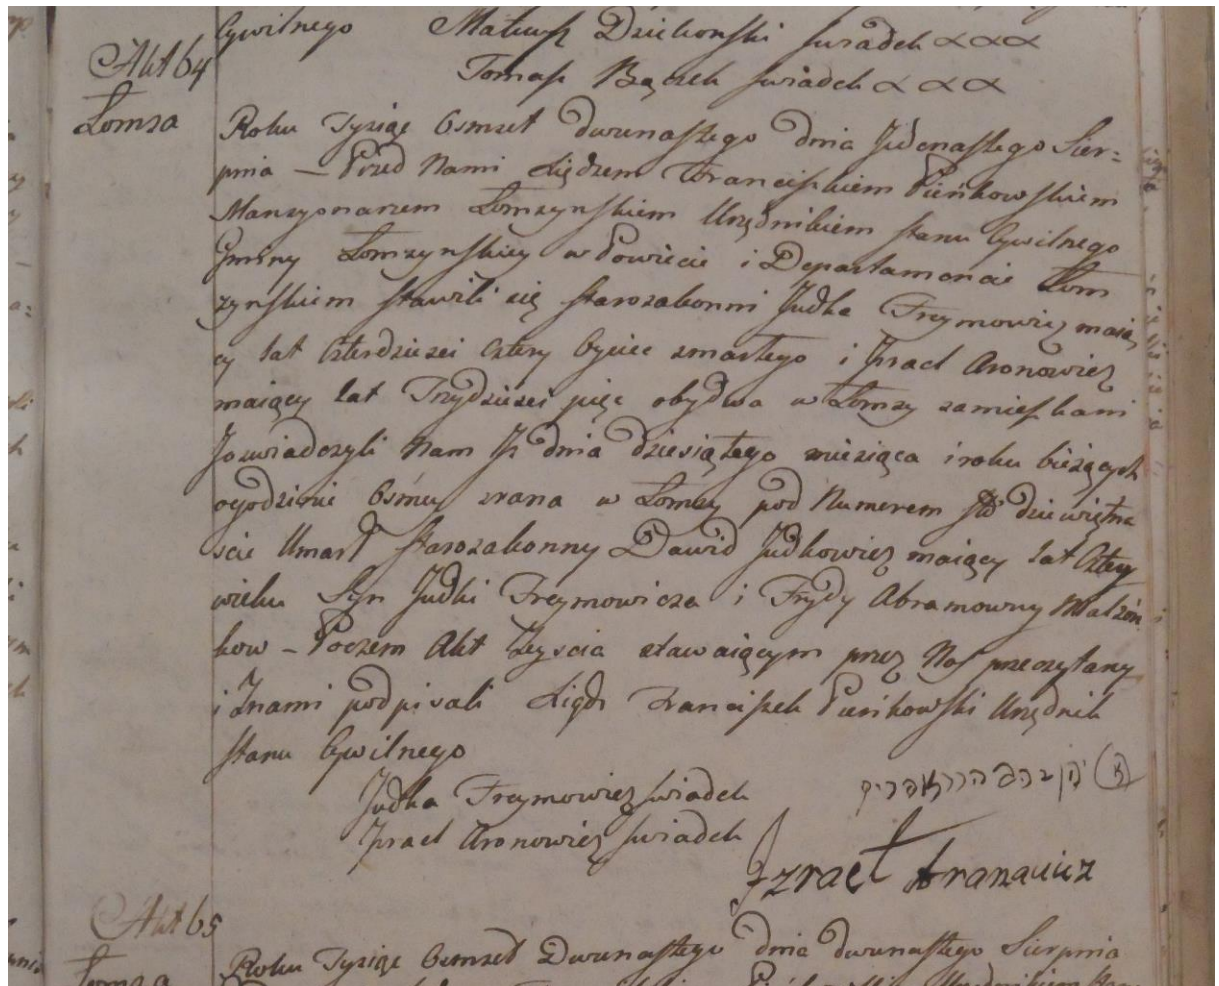 Cywilnego Mateusz Dziekonski swiadek xxx
Akt 64 Tomasz Bączek swiadek xxx
Łomza Roku Tysiąc Osmset dwunastego dnia Jedenastego Sier=
pnia – Przed Nami Xiędzem Franciszkiem Pieńkowskiem
Mansyonarzem Łomzynskiem Urzędnikiem stanu Cywilnego
Gminy Łomzynskiey w Powiecie i Departamencie Łom
zynskiem stawili się starozakonni Judka Freymowicz maią
cy lat Czterdziesci Cztery Oyciec zmarłego i Izrael Aronowicz
maiący lat Trzydziesci pięc obydwa w Łomzy zamieszkani
I oswiadczyli Nam Iz dnia dziesiątego miesiąca i roku bieżących
o godzinie Osmey zrana w Łomzy pod Numerem sto dziewiętna
scie Umarł starozakonny Dawid Judkowicz maiący lat Cztery
wieku Syn Judki Freymowicza i Frydy Abramowny Małżon
kow – Poczem Akt Zeyscia stawaiącym przez Nas przeczytany
i Znami podpisali Xiądz Franciszek Pieńkowski Urzędnik
stanu Cywilnego
Judka Freymowicz swiadek
Izrael Aronowicz swiadek
Izrael Aranawicz
Akt 65
Roku Tysiąc Osmset Dwunastego dnia dwunastego Sierpnia
Łomza